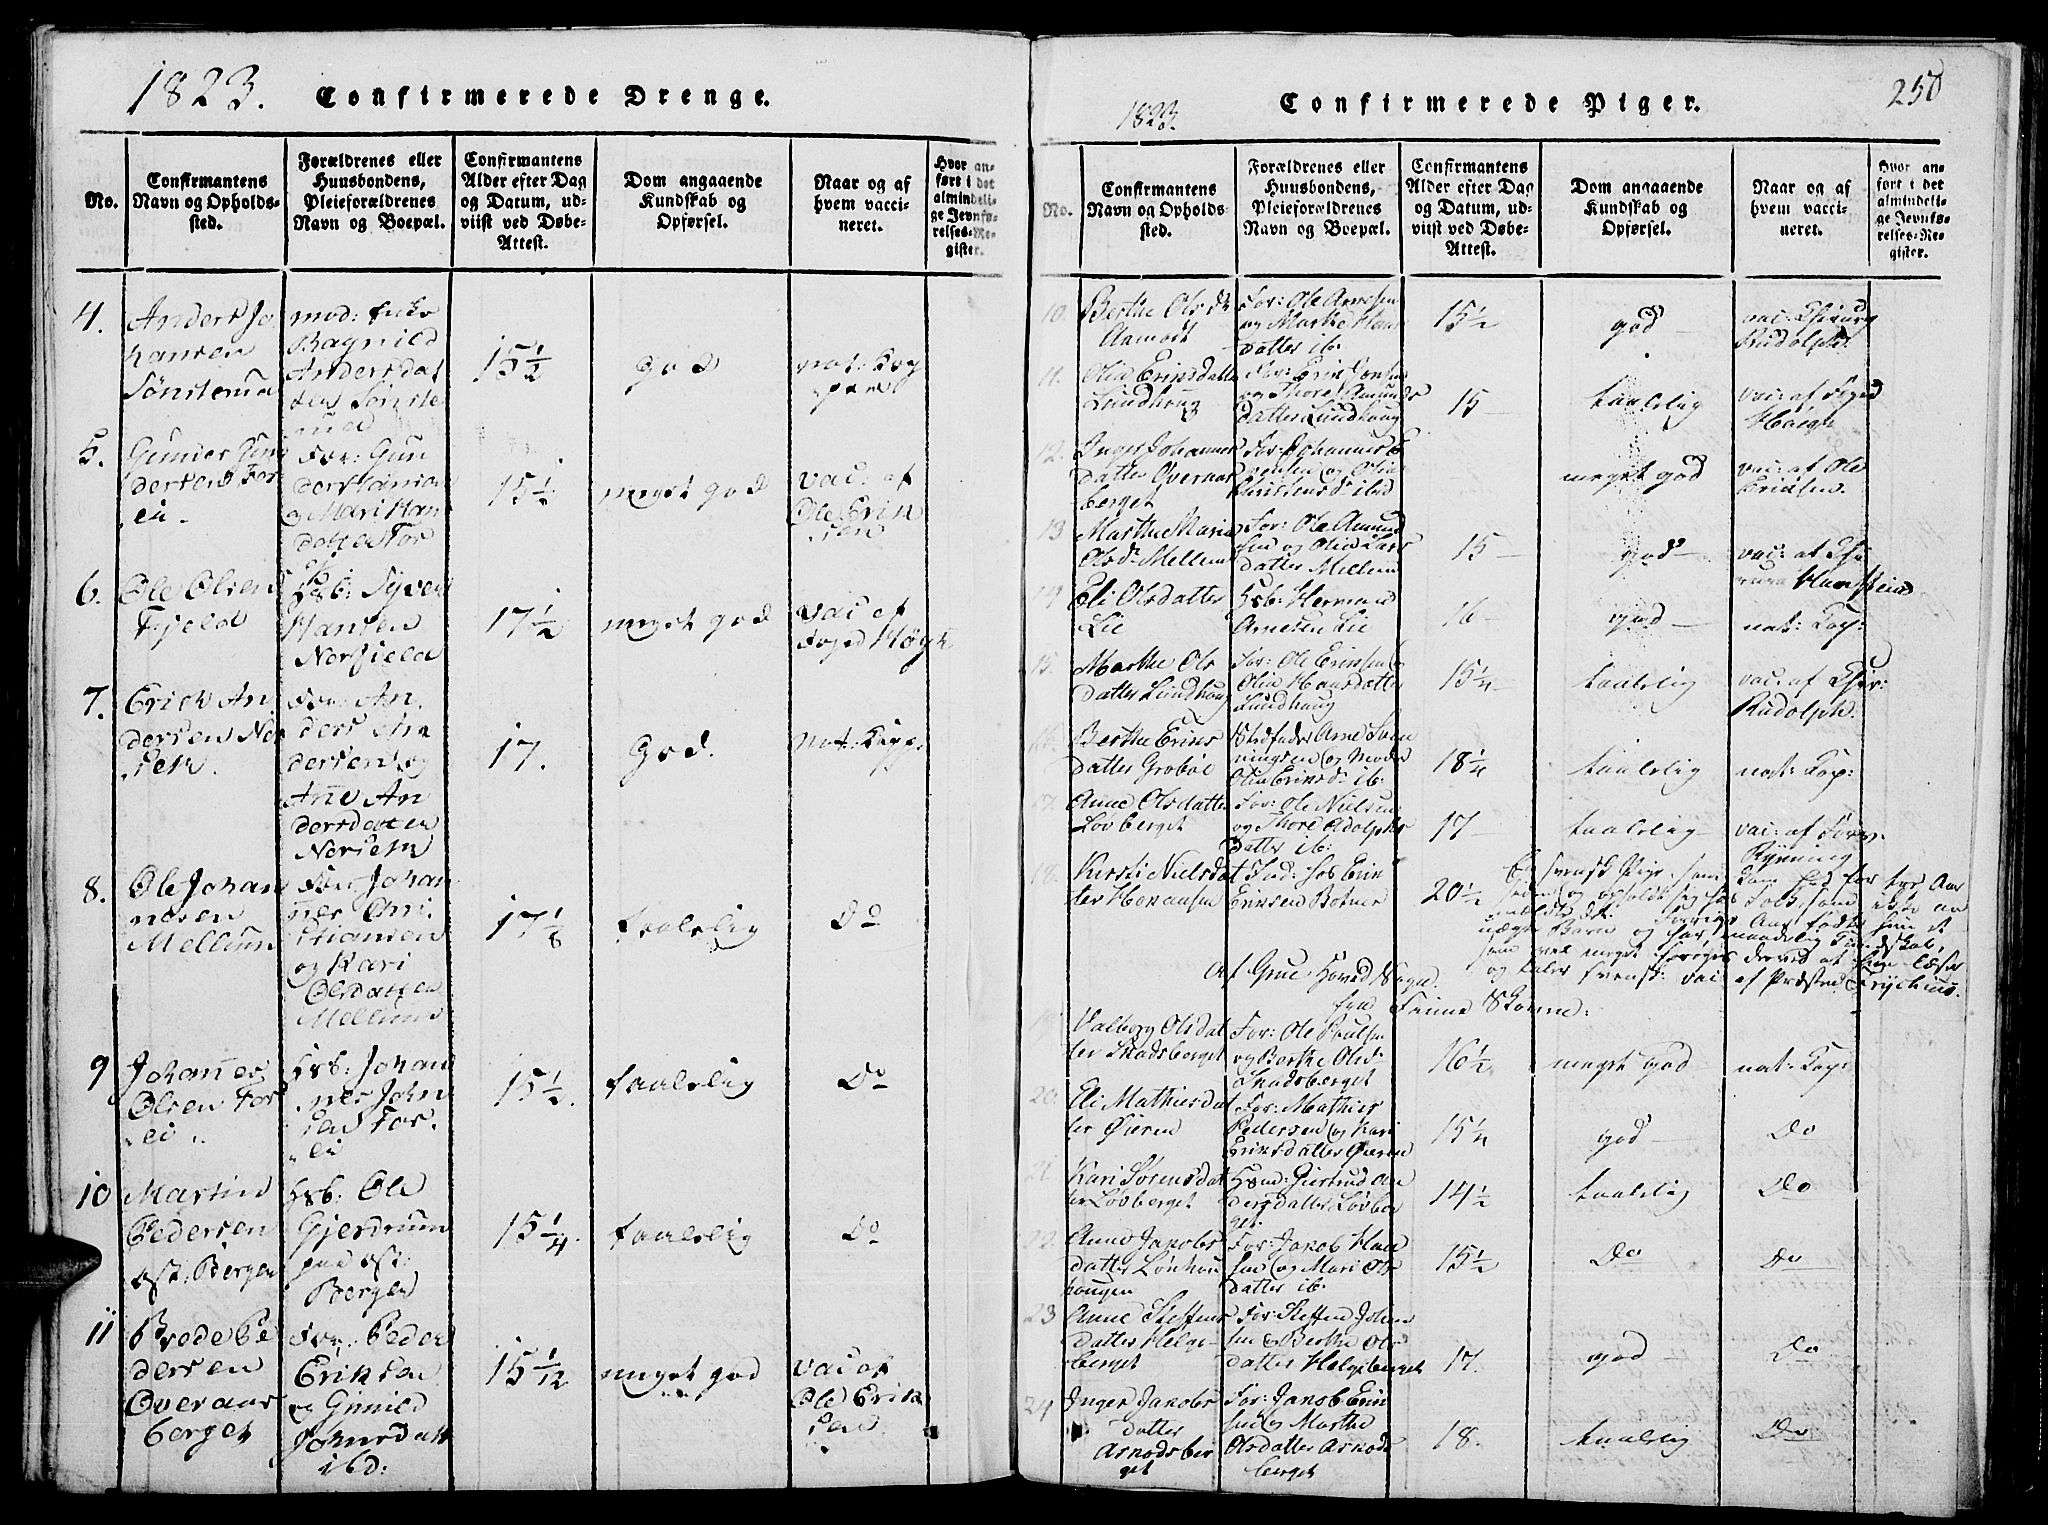 1823.
Confirmerede Drenge.
No.
Confirmantens
Navn og Opholds-
sted.
Forældrenes eller
Huusbondens,
Pleieforældrenes
Navn og Boepæl.
Confirmantens
Alder efter Dag
og Datum, ud-
viist ved Døbe-
Attest.
Dom angaaende
Kundskab og
Opførsel.
Naar og af
hvem vacci-
neret.
Hvor an-
ført i det
almindeli-
ge Jevnfø-
relses-Re-
gister.
4.
Anders Jo
hansen
mod:
Ragnild
Andersdat
15 1/2
god
5.
Gunder Gun
dersen Tor
ei
For: Gun
der Hansen
og Mari Han
datter Tor
15 1/2
meget god
vac: af
Ole Erik
sen
6.
Ole Olsen
Fjeld
Hsb: Syver
Hansen
Norfield
17 1/2
meget god
vac af
Foged Høyh
7.
Erich An
dersen Nor
For: An
ders An
dersen og
Ane An
dersdatter
17.
God.
nat: Kopp:
8.
Ole Johan
nesen
Mellum
For: Johan
nes Cri
stiansen
og Kari
Olsdatter
Mellum
17 1/8
taalelig
Do
9
Johannes
Olsen Tor
ei
Hsb: Johan
nes John
sen Tor
ei
15 1/2.
taalelig
Do
10
Martin
Pedersen
øst: Bergen
Hsb: Ole
Gjerdrum
paa øst:
Bergen
15 1/4.
taalelig
Do
11
Brede Pe
dersen
Overaas
berget
For: Peder
Eriksen
og Gunild
Johnsdatt
ibd:
15 1/12
meget god
vac af
Ole Erik
sen
250
1823.
Confirmerede Piger.
No.
Confirmantens
Navn og Opholds-
sted.
Forældrenes eller
Huusbondens,
Pleieforældrenes
Navn og Boepæl.
Confirmantens
Alder efter Dag
og Datum, ud-
viist ved Døbe-
Attest.
Dom angaaende
Kundskab og
Opførsel.
Naar og af
hvem vacci-
neret.
Hvor an-
ført i det
almindeli-
ge Jevnfø-
relses-Re-
gister.
10.
Berthe Olsdt
Aamodt
For: Ole Arnesen
og Marthe Han
datter ib:
15 1/2
god
vac: Chirurg
Rudolph.
11.
Olia Eriksdatter
Lundhoug
For: Erik Jonsen
og Thore Amunds
datter Lundhoug
15
taalelig
vac: af Foged
Høegh
12.
Inger Johannes
datter Overaas
berget
For: Johannes
og Olia
Christensd: ibid
meget god
vac: af Ole
Eriksen.
13
Marthe Maria
Olsd: Mellum
For: Ole Amund
sen og Olia Lars
datter Mellum
15
god
vac: af Chi
14
Eli Olsdatter
Lie
Hsb: Herman
Arnesen Lie
16
god
nat: Kop:
15.
Marthe Ols
datter Lundhoug
For: Ole Eriksen og
Olia Hansdatter
Lundhoug
15 1/4
taalelig
vac: af Chir:
Rudolph.
16.
Berthe Eriks
datter Grobøl
Stedfader Arne Sven
ningsen og Moder
Olia Eriksd: ib:
18 1/4
taalelig
nat: Kop:
17.
Anne Olsdatter
Løvberget
For: Ole Nielsen
og Thore Adolphs
datter ib:
17
taalelig
vac: af
Rynning
18.
Kirsti Nielsdat
ter
Eriksen Botner
20 1/2
En svensk Pige, som kom hid for tre Aar
siden og opholdt sig hos Folk, som ikke an
meldte det. Forrige Aar fødte hun et
uægte Barn og har maadelig Kundskab,
og taler svensk: vac af Præsten Fryckius.
af Grue Hoved Sogn.
fra Finne Skovene.
19
Valborg Olsdat
ter Skadsberget
For: Ole Poulsen
og Berthe Olsd:
Skadsberget
16 1/2
meget god
nat: Kop:
20.
Eli Mathiesdat
ter Øieren
For: Mathies
Pedersen og Kari
Eriksdatter Øieren
15 1/4
god
Do
21
Kari Sørensdat
ter Løvberget
Hsm: Giertrud An
dersdatter Løvber
get
14 1/2
taalelig
Do
22.
Anne Jakobs
datter Lønhou
hougen
For: Jakob Han
sen og Mari Ols
datter ib:
15 1/2
Do
Do
23
Anne Steffens
datter Helge-
berget
For: Steffen John
sen & Berthe Ols
datter Helgeberget
17.
god
Do
24
Inger Jakobs
datter
Arnodsber
get
For: Jakob Erik
sen og Marthe
Olsdatter Arnods
berget
18.
taalelig
Do